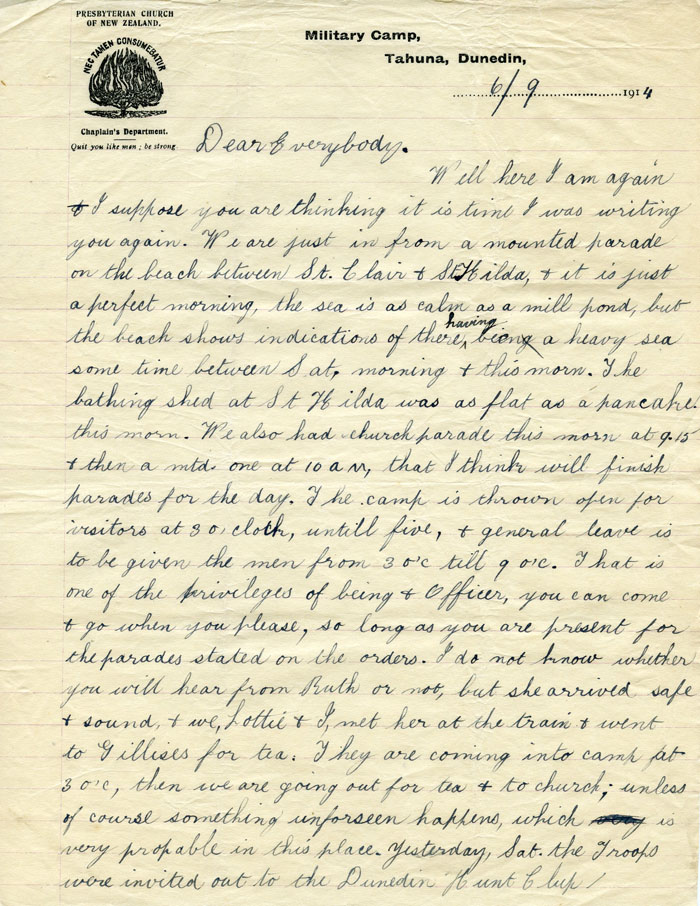 PRESBYTERIAN CHURCH
OF NEW ZEALAND.
NEC TAMEN CONSUMEBATUR
Chaplain's Department.
Quit you like men; be strong
Military Camp,
Tahuna, Dunedin,
6/9 1914
Dear Everybody.
Well here I am again
& I suppose you are thinking it is time I was writing
you again. We are just in from a mounted parade
on the beach between St. Clair & St Hilda, & it is just
a perfect morning, the sea is as calm as a mill pond, but
the beach shows indications of there, having being a heavy sea
some time between Sat. morning & this morn. The
bathing shed at St Hilda was as flat as a pancake.
this morn. We also had church parade this morn at 9.15
& then a mtd. one at 10 am, that I think will finish
parades for the day. The camp is thrown open for
visitors at 3 o, clock, untill five, & general leave is
to be given the men from 3 o'c till 9 o'c. That is
one of the privileges of being & Officer, you can come
& go when you please, so long as you are present for
the parades stated on the orders. I do not know whether
you will hear from Ruth or not, but she arrived safe
& sound, & we, Lottie & I, met her at the train & went
to Gillises for tea. They are coming into camp at
3 o'c, then we are going out for tea & to church; unless
of course something unforseen happens, which is
very propable in this place. Yesterday, Sat. the Troops
were invited out to the Dunedin Hunt Clup!